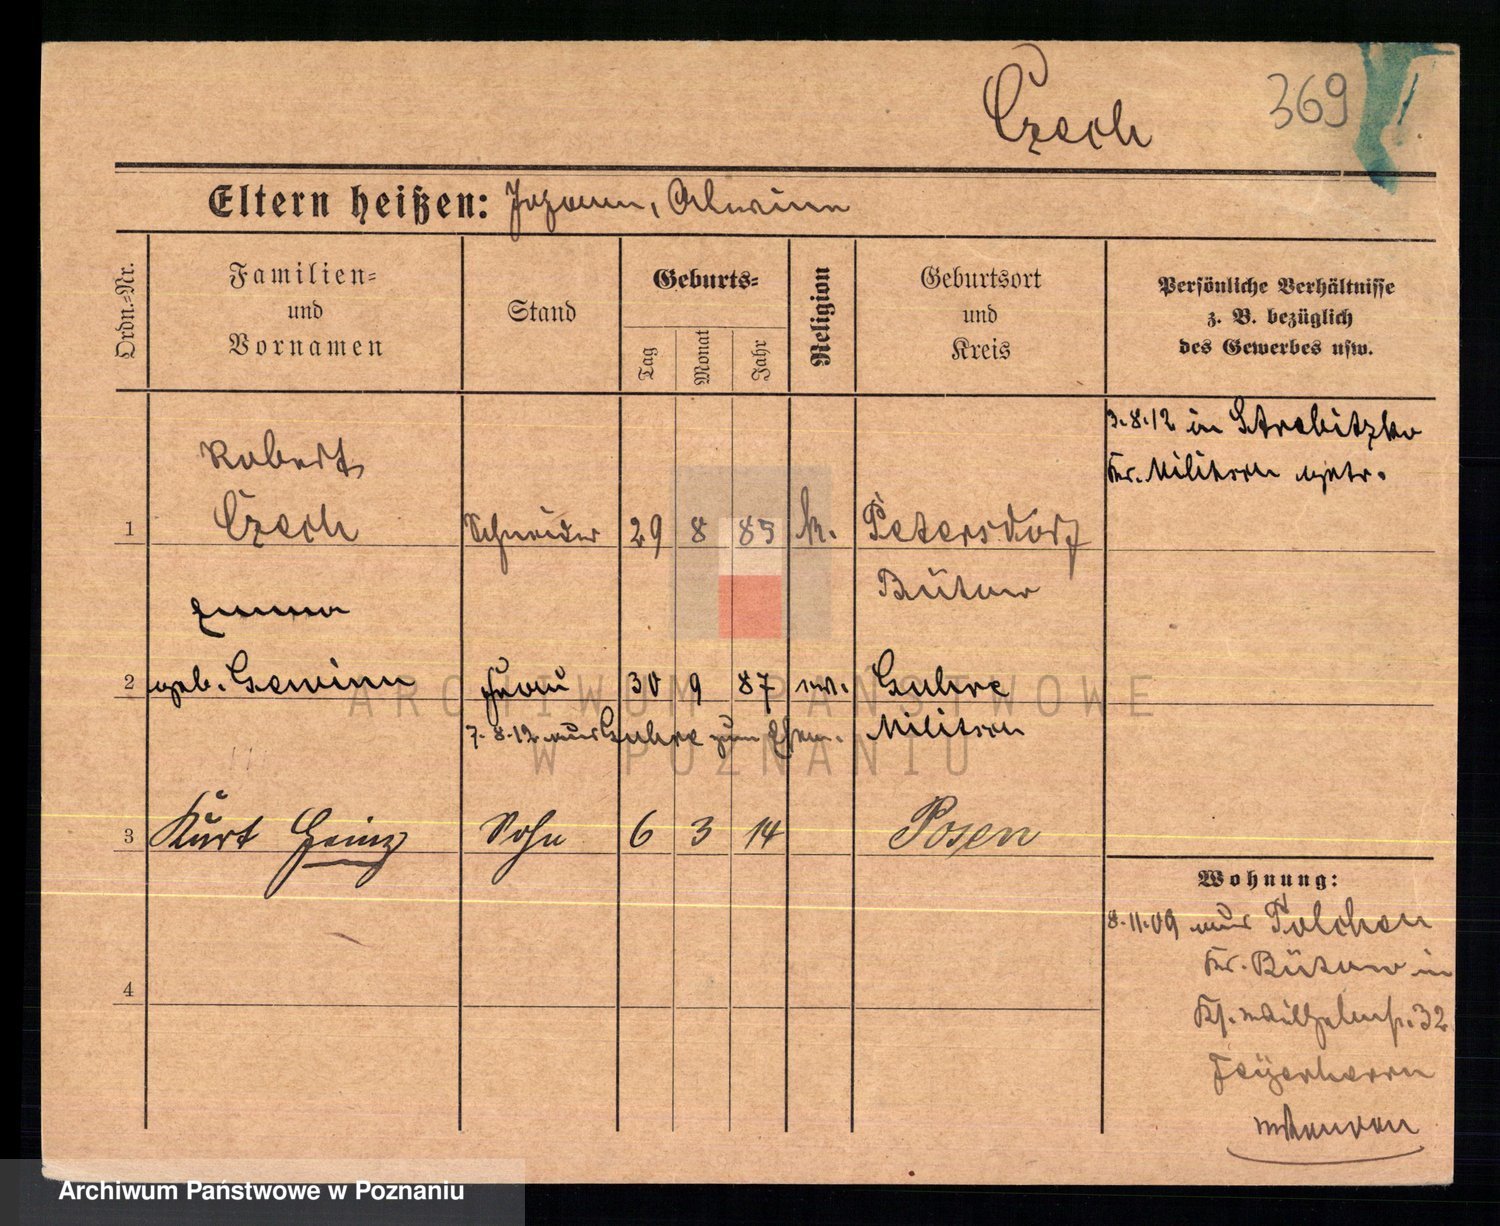 Czech
369
Eltern heißen: Johann, Alwine
Ordn.=Nr.
Familien=
und
Vornamen
Stand
Geburts=
Tag
Monat
Jahr
Religion
Geburtsort
und
Kreis
Persönliche Verhältnisse
z. B. bezüglich
des Gewerbes usw.
3.8.12 in Strebitzko
Kr. Militsch getr.
Robert
Czech
1 Schneider 29 8 85 k. Petersdorf
Bütow
Emma
2 geb. Gewinn Frau 30 9 87 Guhre
7.8.12 aus Guhre zum Ehem. Militsch
3 Kurt Heinz Sohn 6 3 14 Posen
Wohnung:
8.11.09 aus Polchen
Kr. Bütow in
Ks. Wilhelmstr. 32
4
ARCHIWUM PAŃSTWOWE
W POZNANIU
Archiwum Państwowe w Poznaniu